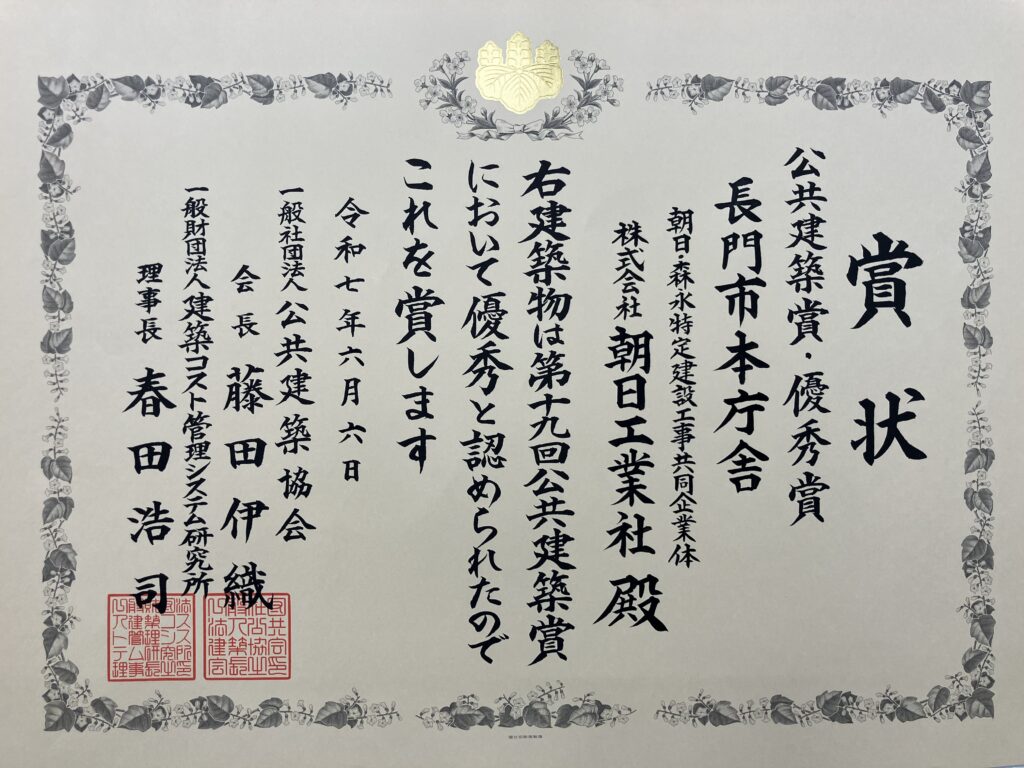 賞状
公共建築賞・優秀賞
長門市本庁舎
朝日・森永特定建設工事共同企業体
株式会社 朝日工業社 殿
右建築物は第十九回公共建築賞
において優秀と認められたので
これを賞します
令和七年六月六日
一般社団法人 公共建築協会
会長 藤田伊織
一般財団法人 建築コスト管理システム研究所
理事長 春田浩司